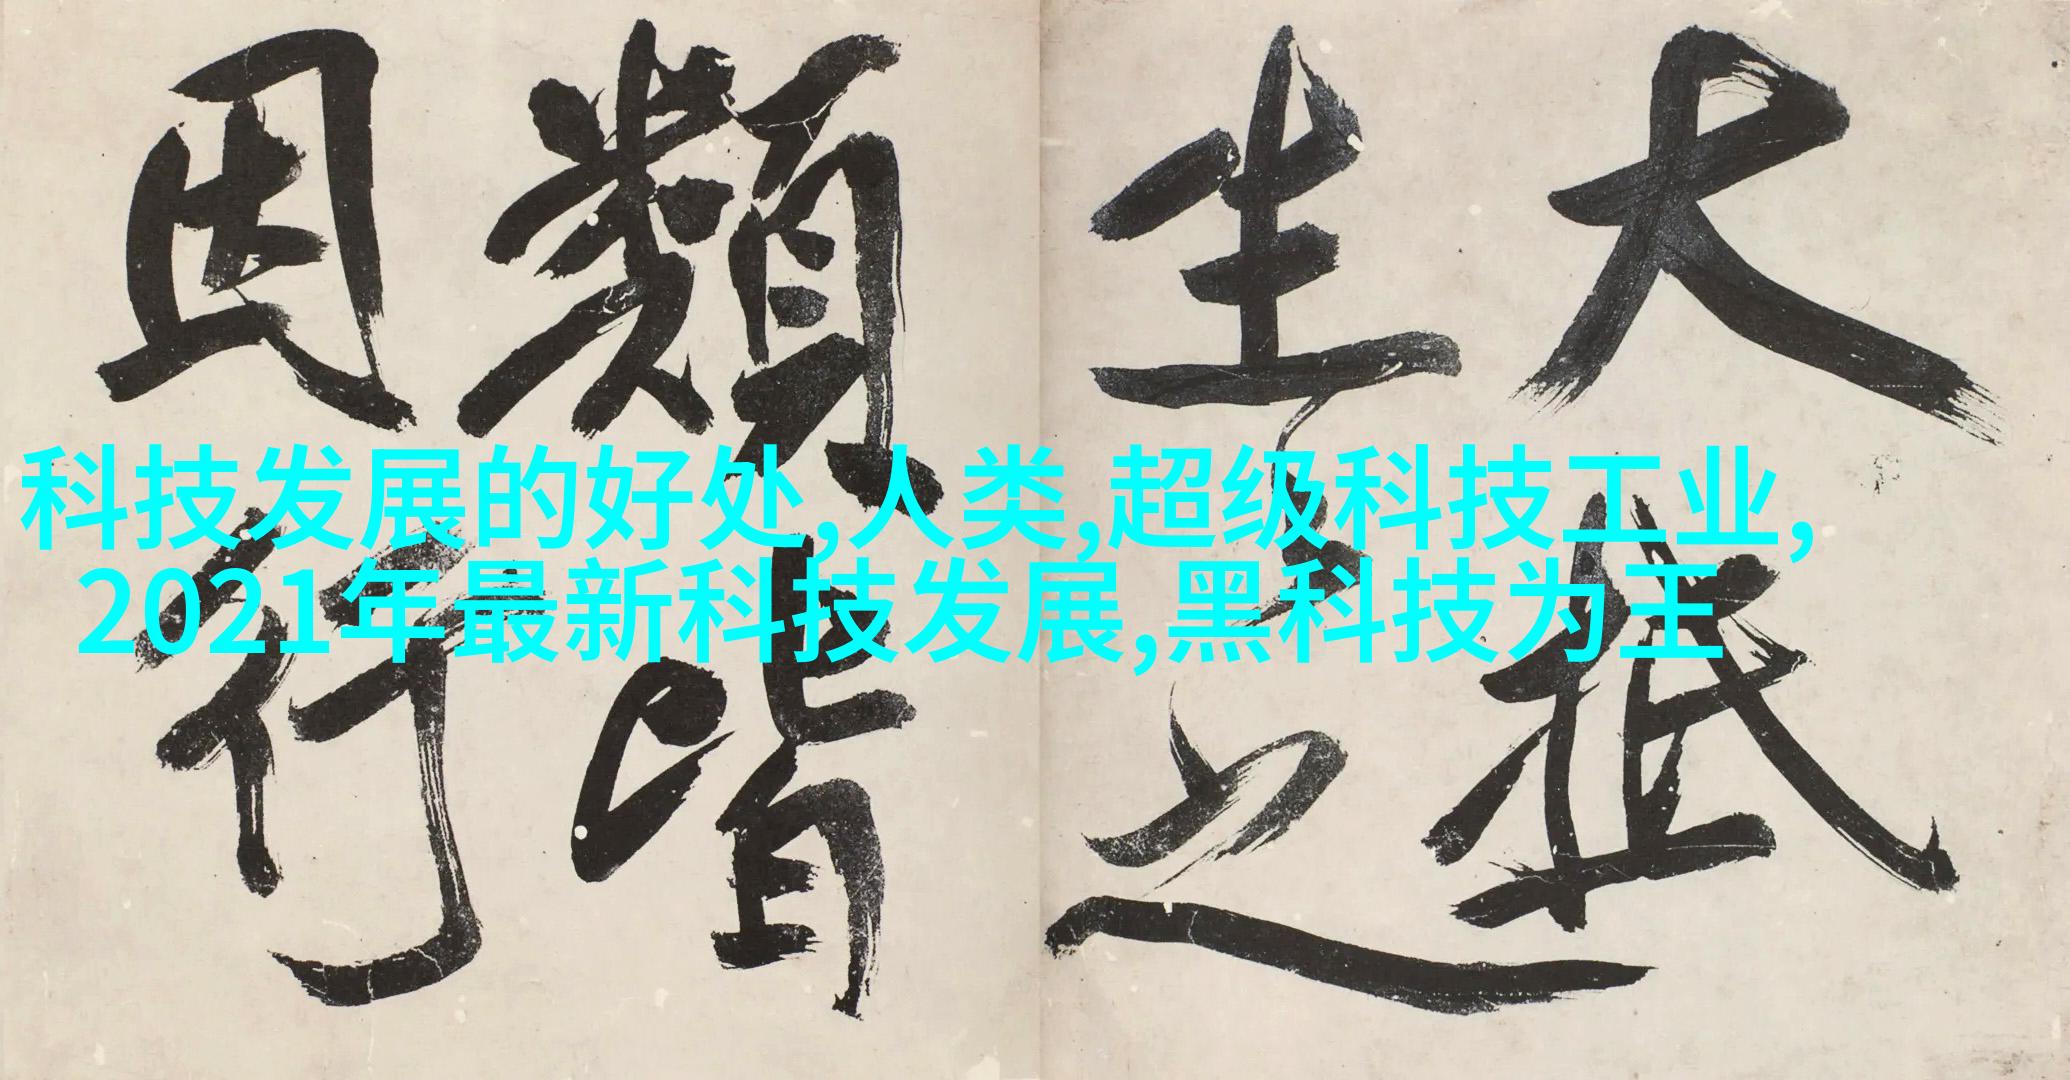 大抵
生之
類皆
因行
科技发展的好处,人类,超级科技工业,
2021年最新科技发展,黑科技为王